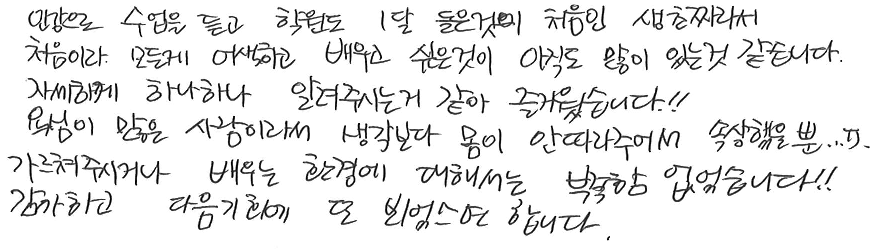 인강으로 수업을 듣고 학원도 1달 들은것이 처음인 생초짜라서
처음이라 모든게 어색하고 배우고 싶은것이 아직도 많이 있는것 같습니다.
자세하게 하나하나 알려주시는거 같아 즐거웠습니다!!
욕심이 많은 사람이라서 생각보다 몸이 안따라주어서 속상했을 뿐...
가르쳐주시거나 배우는 환경에 대해서는 부족함 없었습니다!!
감사하고 다음기회에 또 뵈었으면 합니다.